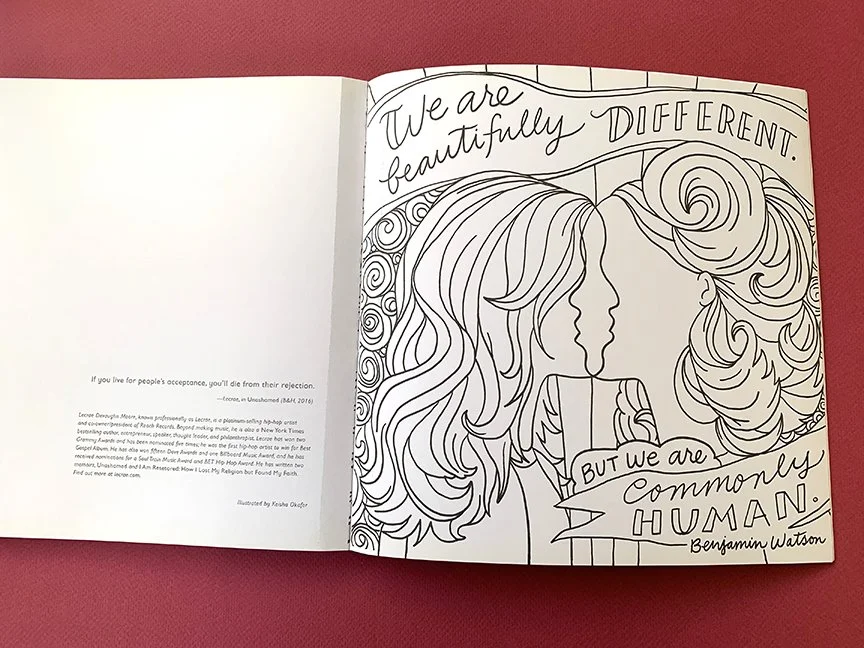 If you live for people's acceptance, you'll die from their rejection.
—Lecrae, in Unashamed (B&H, 2016)
Lecrae Devaughn Moore, known professionally as Lecrae, is a platinum-selling hip-hop artist
and co-owner/president of Reach Records. Beyond making music, he is also a New York Times
bestselling author, entrepreneur, speaker, thought leader, and philanthropist. Lecrae has won two
Grammy Awards and has been nominated five times; he was the first hip-hop artist to win for Best
Gospel Album. He has also won fifteen Dove Awards and one Billboard Music Award, and he has
received nominations for a Soul Train Music Award and BET Hip-Hop Award. He has written two
memoirs, Unashamed and I Am Restored: How I Lost My Religion but Found My Faith.
Find out more at lecrae.com.
Illustrated by Keisha Okafor
We are
beautifully DIFFERENT.
BUT WE ARE
Commonly
HUMAN.
Benjamin Watson